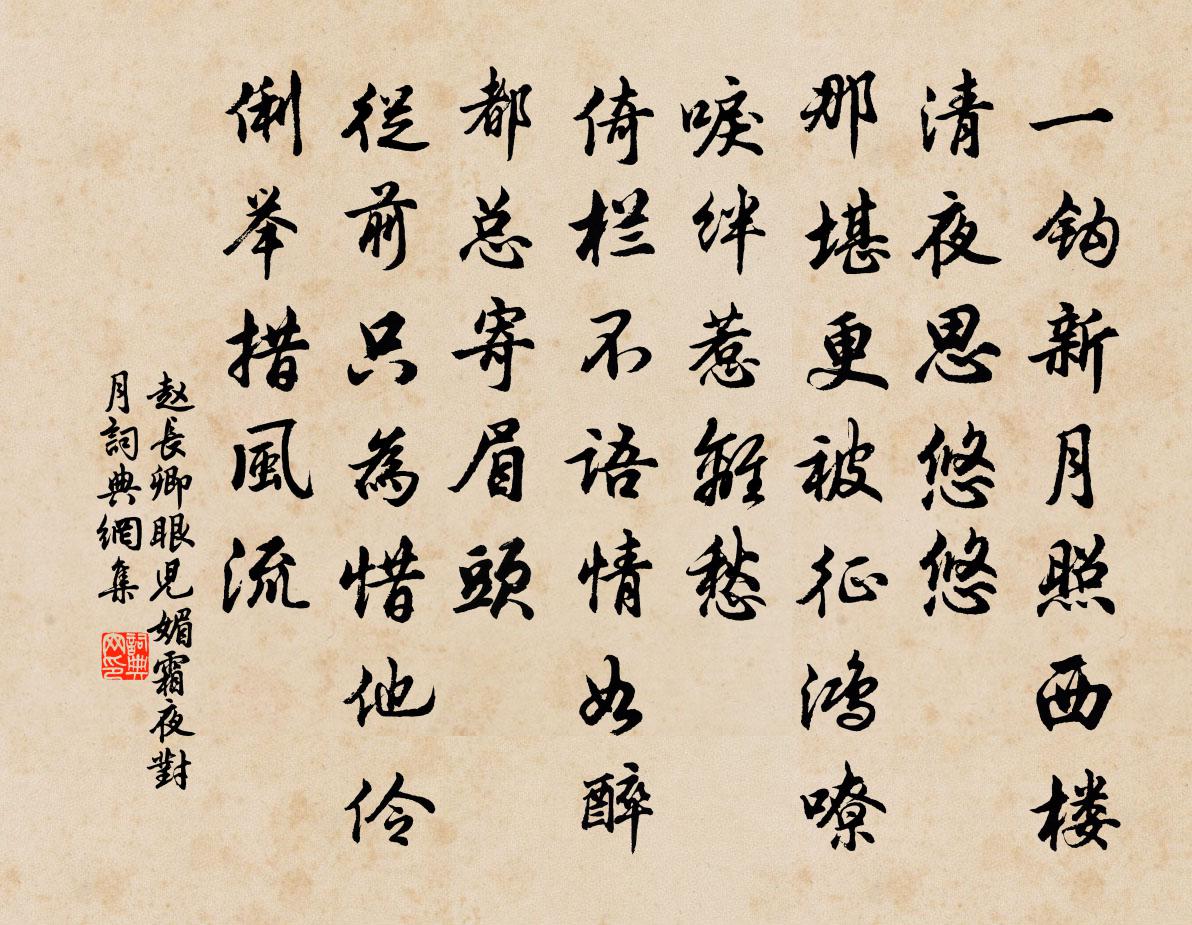 一钩新月照西楼
清夜思悠悠
那堪更被征鸿嘹
唳绊惹離愁
倚栏不语情如醉
都总寄眉頭
從前只為惜他伶
俐举措風流
赵長卿眼児媚霜夜對
月詞典網集
詞典
网印